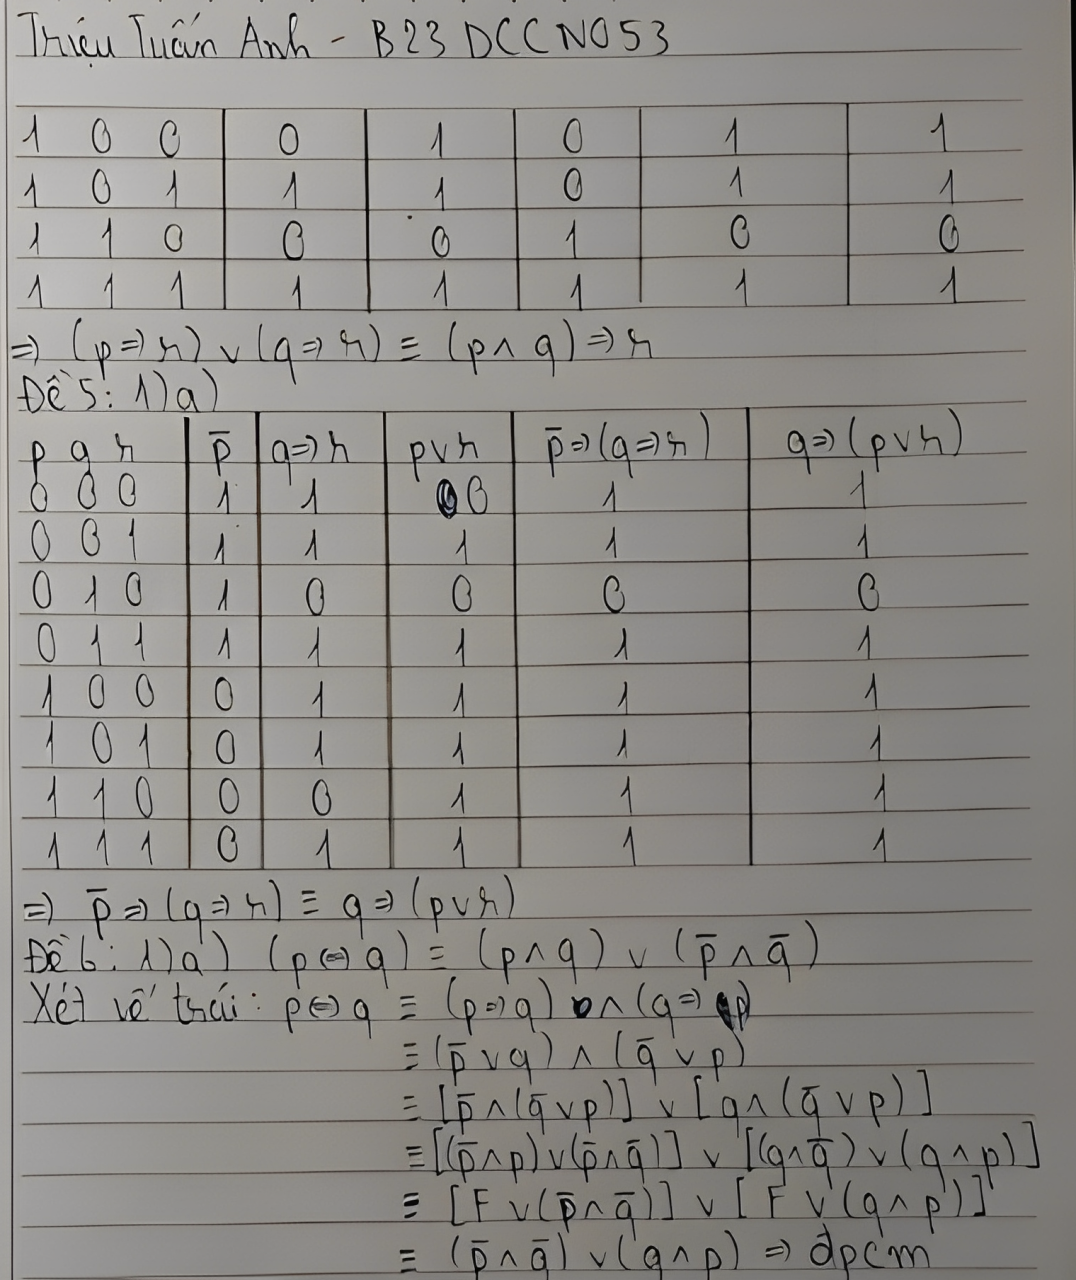 Triệu Tuấn Anh - B23DCCN053
1 0 0 0 1 0 1 1
1 0 1 1 1 0 1 1
1 1 0 0 0 1 0 0
1 1 1 1 1 1 1 1
⇒ (p⇒r) ∨ (q⇒r) ≡ (p∧q)⇒r
Đề 5: 1)a)
p q r p̄ q⇒r p∨r p̄⇒(q⇒r) q⇒(p∨r)
0 0 0 1 1 0 1 1
0 0 1 1 1 1 1 1
0 1 0 1 0 0 0 0
0 1 1 1 1 1 1 1
1 0 0 0 1 1 1 1
1 0 1 0 1 1 1 1
1 1 0 0 0 1 1 1
1 1 1 0 1 1 1 1
⇒ p̄⇒(q⇒r) ≡ q⇒(p∨r)
Đề 6: 1)a) (p⇔q) ≡ (p∧q) ∨ (p̄∧q̄)
Xét vế trái: p⇔q ≡ (p⇒q) ∧ (q⇒p)
≡ (p̄∨q) ∧ (q̄∨p)
≡ [p̄∧(q̄∨p)] ∨ [q∧(q̄∨p)]
≡ [(p̄∧p)∨(p̄∧q̄)] ∨ [(q∧q̄)∨(q∧p)]
≡ [F∨(p̄∧q̄)] ∨ [F∨(q∧p)]
≡ (p̄∧q̄) ∨ (q∧p) ⇒ đpcm